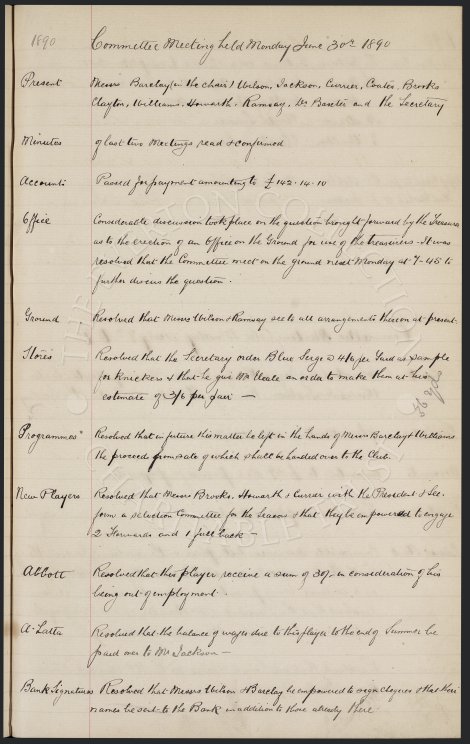 1890 Committee Meeting held Monday June 30th 1890
Present Messrs Barclay (in the chair) Wilson, Jackson, Currer, Coates, Brooks
Clayton, Williams, Howarth, Ramsay, Dr Baxter and the Secretary
Minutes of last two Meetings read & confirmed
Accounts Passed for payment amounting to £142.14.10
Office Considerable discussion took place on the question brought forward by the Treasurer
as to the erection of an Office on the Ground for use of the treasurers. It was
resolved that the Committee meet on the ground next Monday at 7-45 to
further discuss the question.
Ground Resolved that Messrs Wilson & Ramsay see to all arrangements thereon at present.
Stores Resolved that the Secretary order Blue Serge @ 4/6 per Yard as sample
for Knickers & that he give Mr an order to make them at his
estimate of 3/6 per pair —
Programmes Resolved that in future this matter be left in the hands of Messrs Barclay & Williams
the proceeds from sale of which shall be handed over to the Club.
New Players Resolved that Messrs Brooks, Howarth & Currer with the President & Sec.
form a selection Committee for the Season & that they be empowered to engage
2 Forwards and 1 full back —
Abbott Resolved that this player receive a sum of 30/- in consideration of his
being out of employment.
A. Latta Resolved that the balance of wages due to this player to the end of Summer be
paid over to Mr Jackson —
Bank Signatures Resolved that Messrs Wilson & Barclay be empowered to sign cheques & that their
names be sent to the Bank in addition to those already there